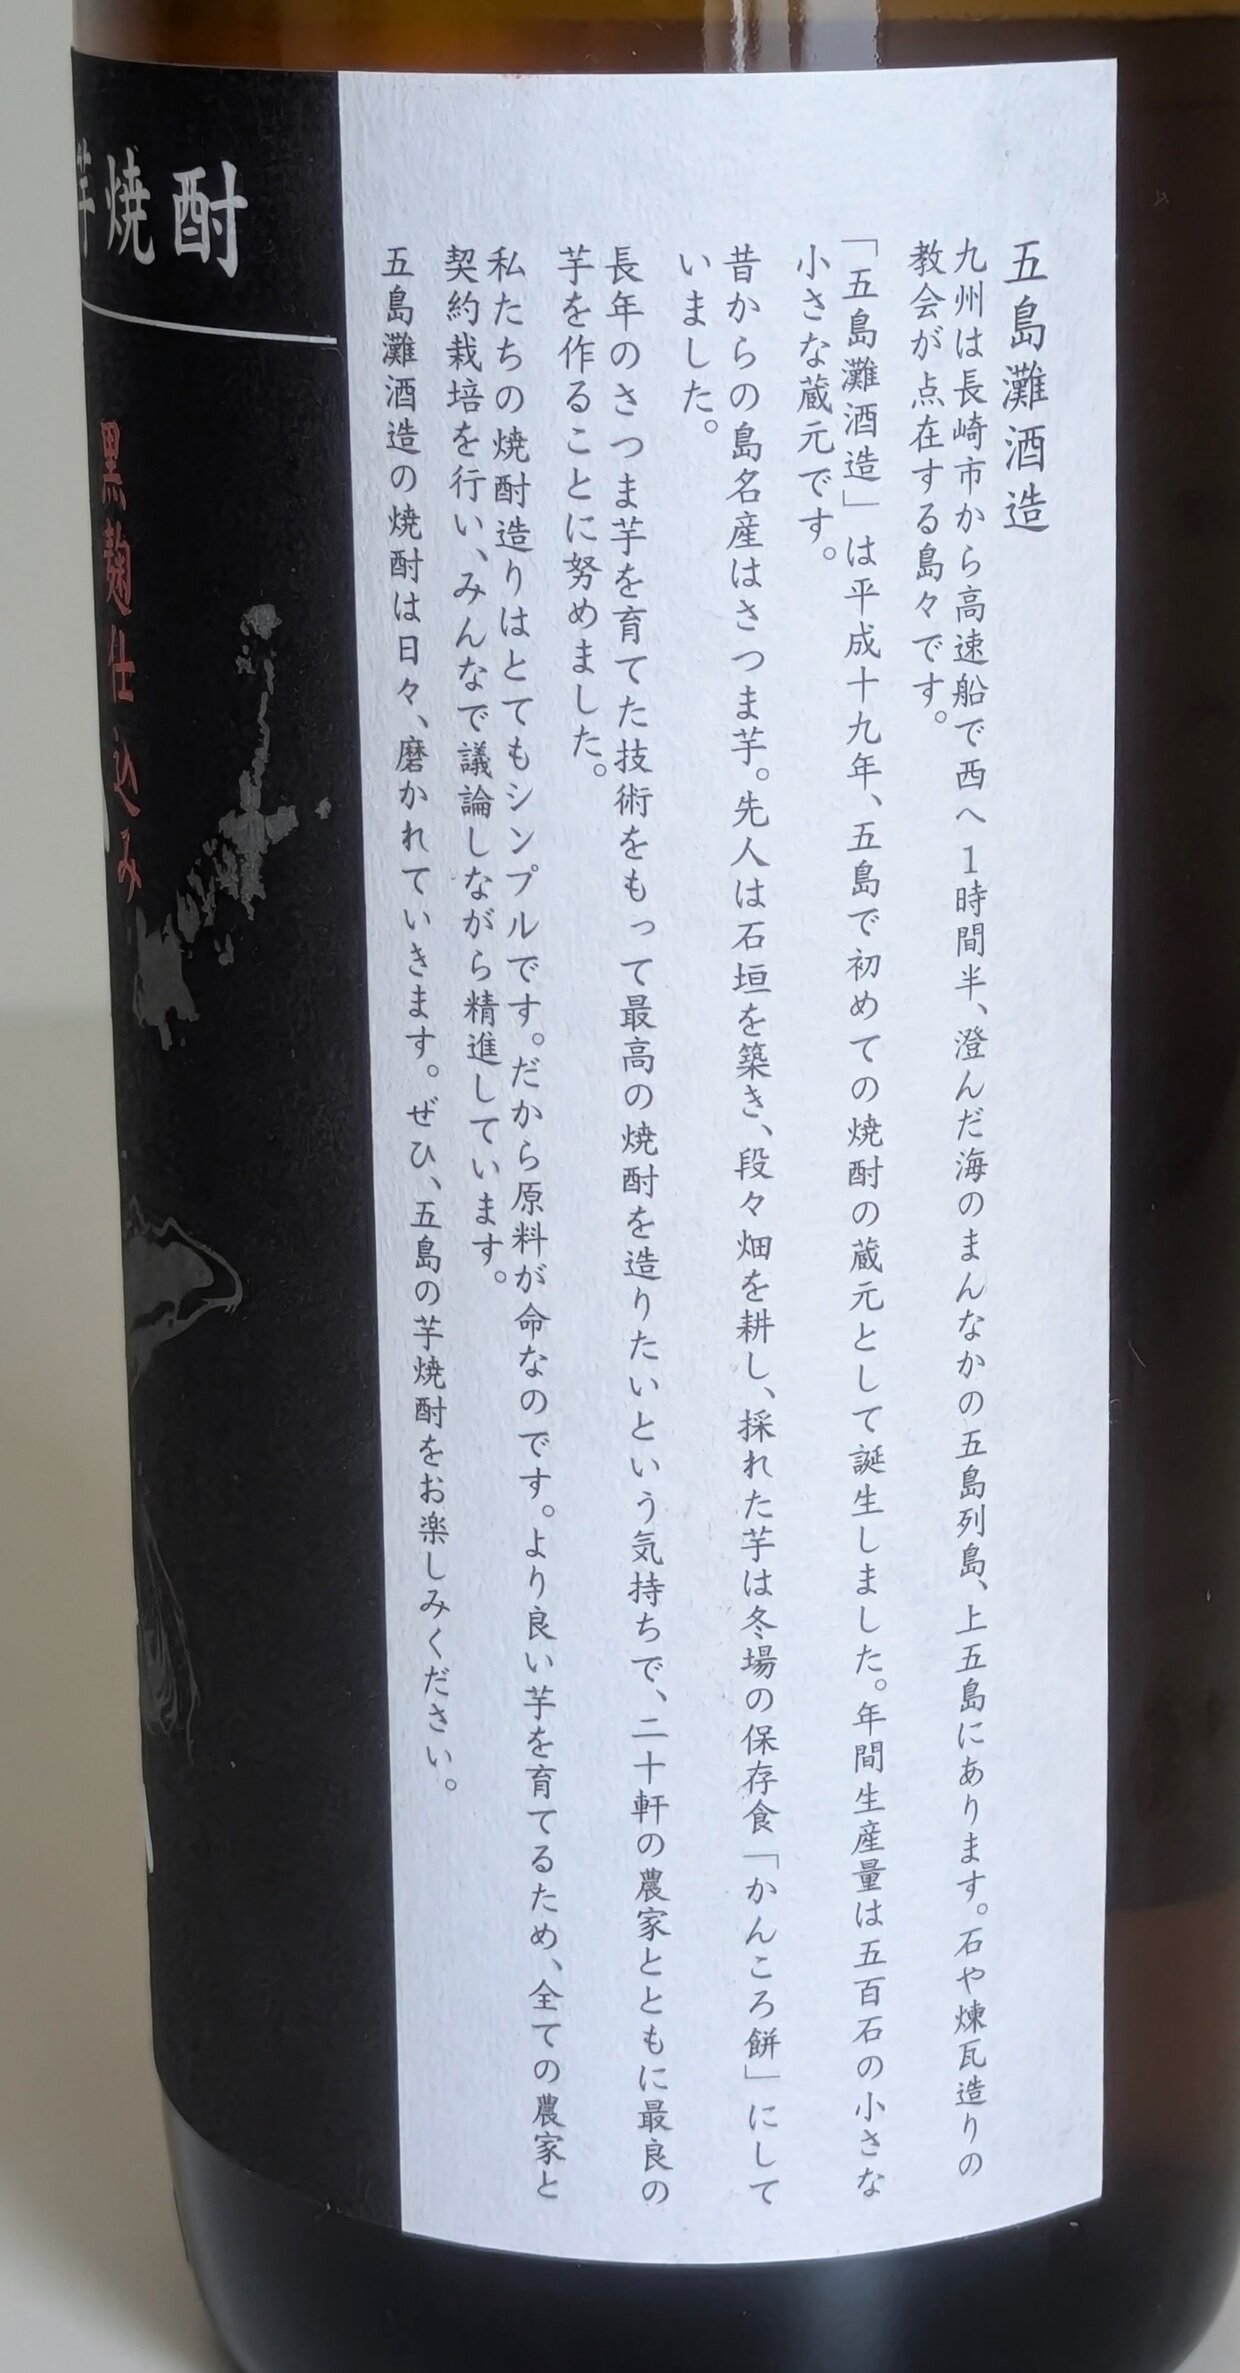 五島灘酒造
九州は長崎市から高速船で西へ1時間半、澄んだ海のまんなかの五島列島、上五島にあります。石や煉瓦造りの
教会が点在する島々です。
「五島灘酒造」は平成十九年、五島で初めての焼酎の蔵元として誕生しました。年間生産量は五百石の小さな
小さな蔵元です。
昔からの島名産はさつま芋。先人は石垣を築き、段々畑を耕し、採れた芋は冬場の保存食「かんころ餅」にして
いました。
長年のさつま芋を育てた技術をもって最高の焼酎を造りたいという気持ちで、二十軒の農家とともに最良の
芋を作ることに努めました。
私たちの焼酎造りはとてもシンプルです。だから原料が命なのです。より良い芋を育てるため、全ての農家と
契約栽培を行い、みんなで議論しながら精進しています。
五島灘酒造の焼酎は日々、磨かれていきます。ぜひ、五島の芋焼酎をお楽しみください。
芋焼酎
黒麹仕込み